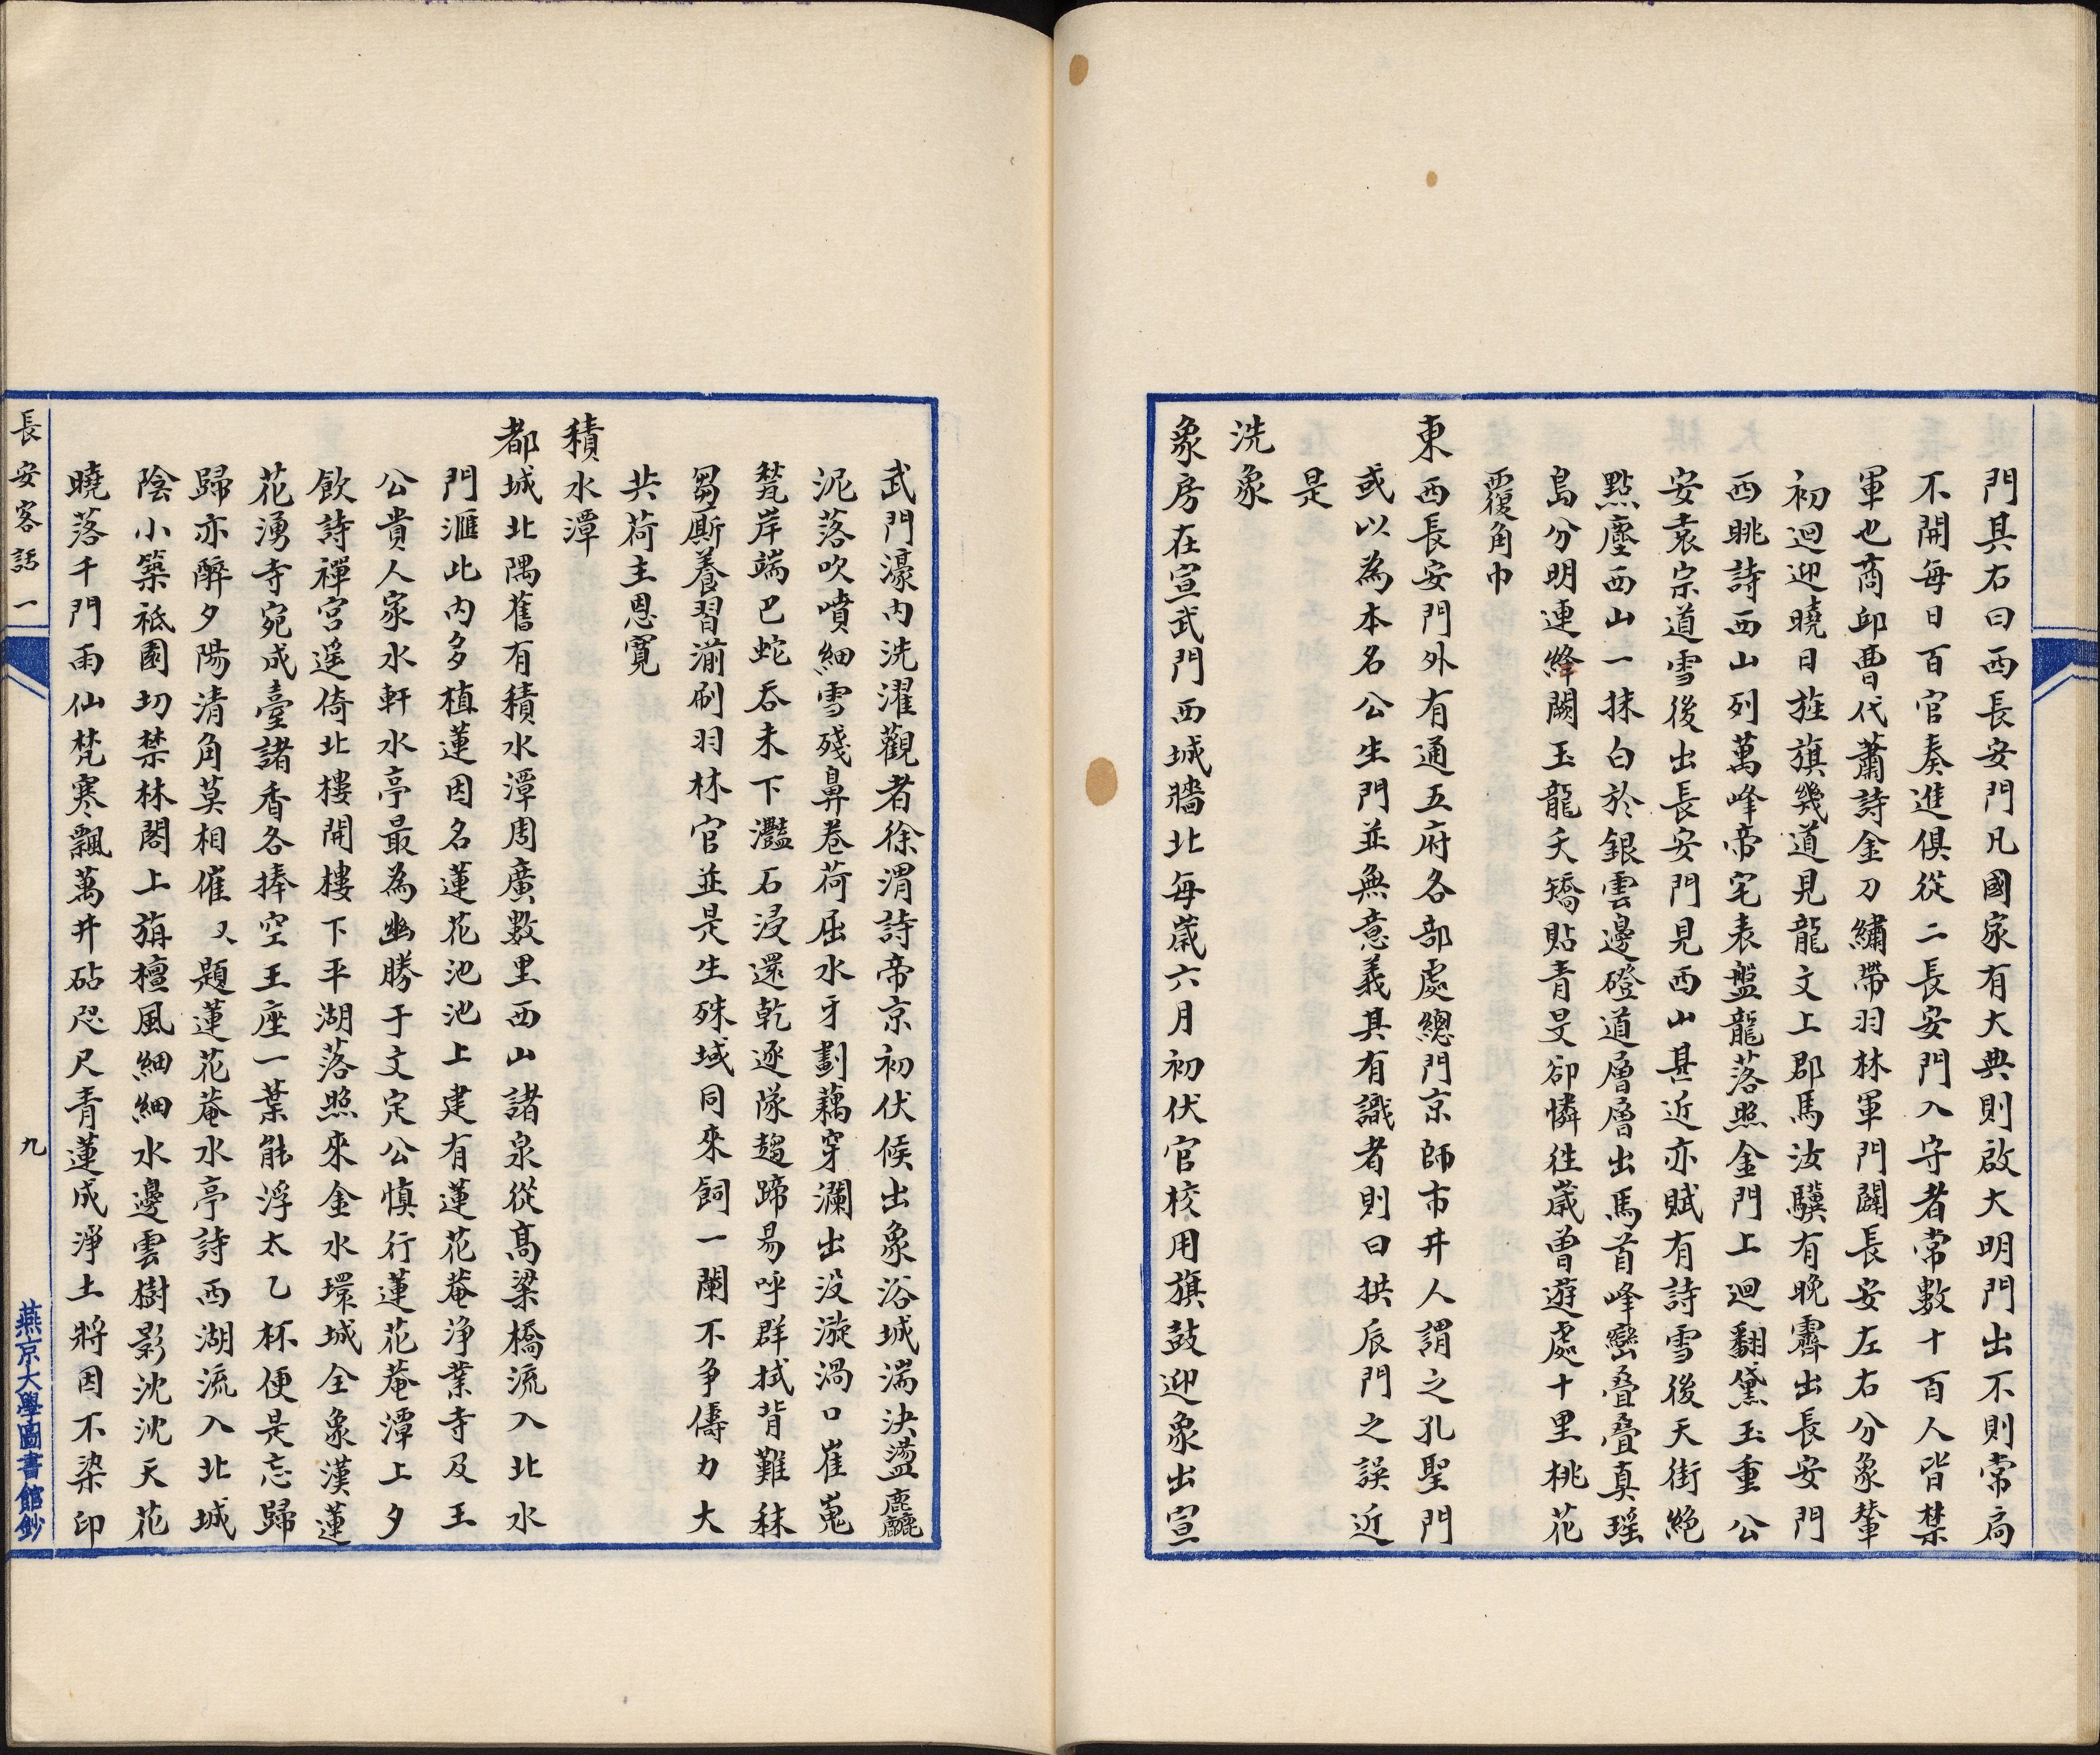 門其右曰西長安門凡國家有大典則啟大明門出不則常扃
不開每日百官奏進俱從二長安門入守者常數十百人皆禁
軍也商邱曹代蕭詩金刀繡帶羽林軍門闢長安左右分象輦
初迴迎曉日旌旗幾道見龍文上郡馬汝驥有晚霽出長安門
西眺詩西山列萬峰帝宅表盤龍落照金門上迴翻黛玉重公
安袁宗道雪後出長安門見西山甚近亦賦有詩雪後天街絕
點塵西山一抹白於銀雲邊磴道層層出馬首峰巒疊疊真瑶
島分明連絳闕玉龍夭矯貼青旻卻憐徃歲曾遊處十里桃花
覆角巾
東西長安門外有通五府各部處總門京師市井人謂之孔聖門
或以為本名公生門並無意義其有識者則曰拱辰門之誤近
是
洗象
象房在宣武門西城牆北每歲六月初伏官校用旗鼓迎象出宣
武門濠內洗濯觀者徐渭詩帝京初伏候出象浴城湍決盪麤
泥落吹噴細雪殘鼻卷荷屈水牙劃藕穿瀾出没漩渦口崔嵬
甃岸端巴蛇吞未下灩石浸還乾逐隊趨蹄易呼群拭背難秣
芻厮養習湔刷羽林官並是生殊域同來飼一闌不争儔力大
共荷主恩寛
積水潭
都城北隅舊有積水潭周廣數里西山諸泉從高梁橋流入北水
門滙此內多植蓮因名蓮花池池上建有蓮花菴浄業寺及王
公貴人家水軒水亭最為幽勝于文定公慎行蓮花菴潭上夕
飲詩禪宮遥倚北樓開樓下平湖落照來金水環城全象漢蓮
花湧寺宛成臺諸香各捧空王座一葉能浮太乙杯便是忘歸
歸亦醉夕陽清角莫相催又題蓮花菴水亭詩西湖流入北城
陰小築祇園切禁林閣上旃檀風細細水邊雲樹影沈沈天花
曉落千門雨仙梵寒飄萬井砧咫尺青蓮成淨土將因不染印
長安客話一
九
燕京大學圖書館鈔